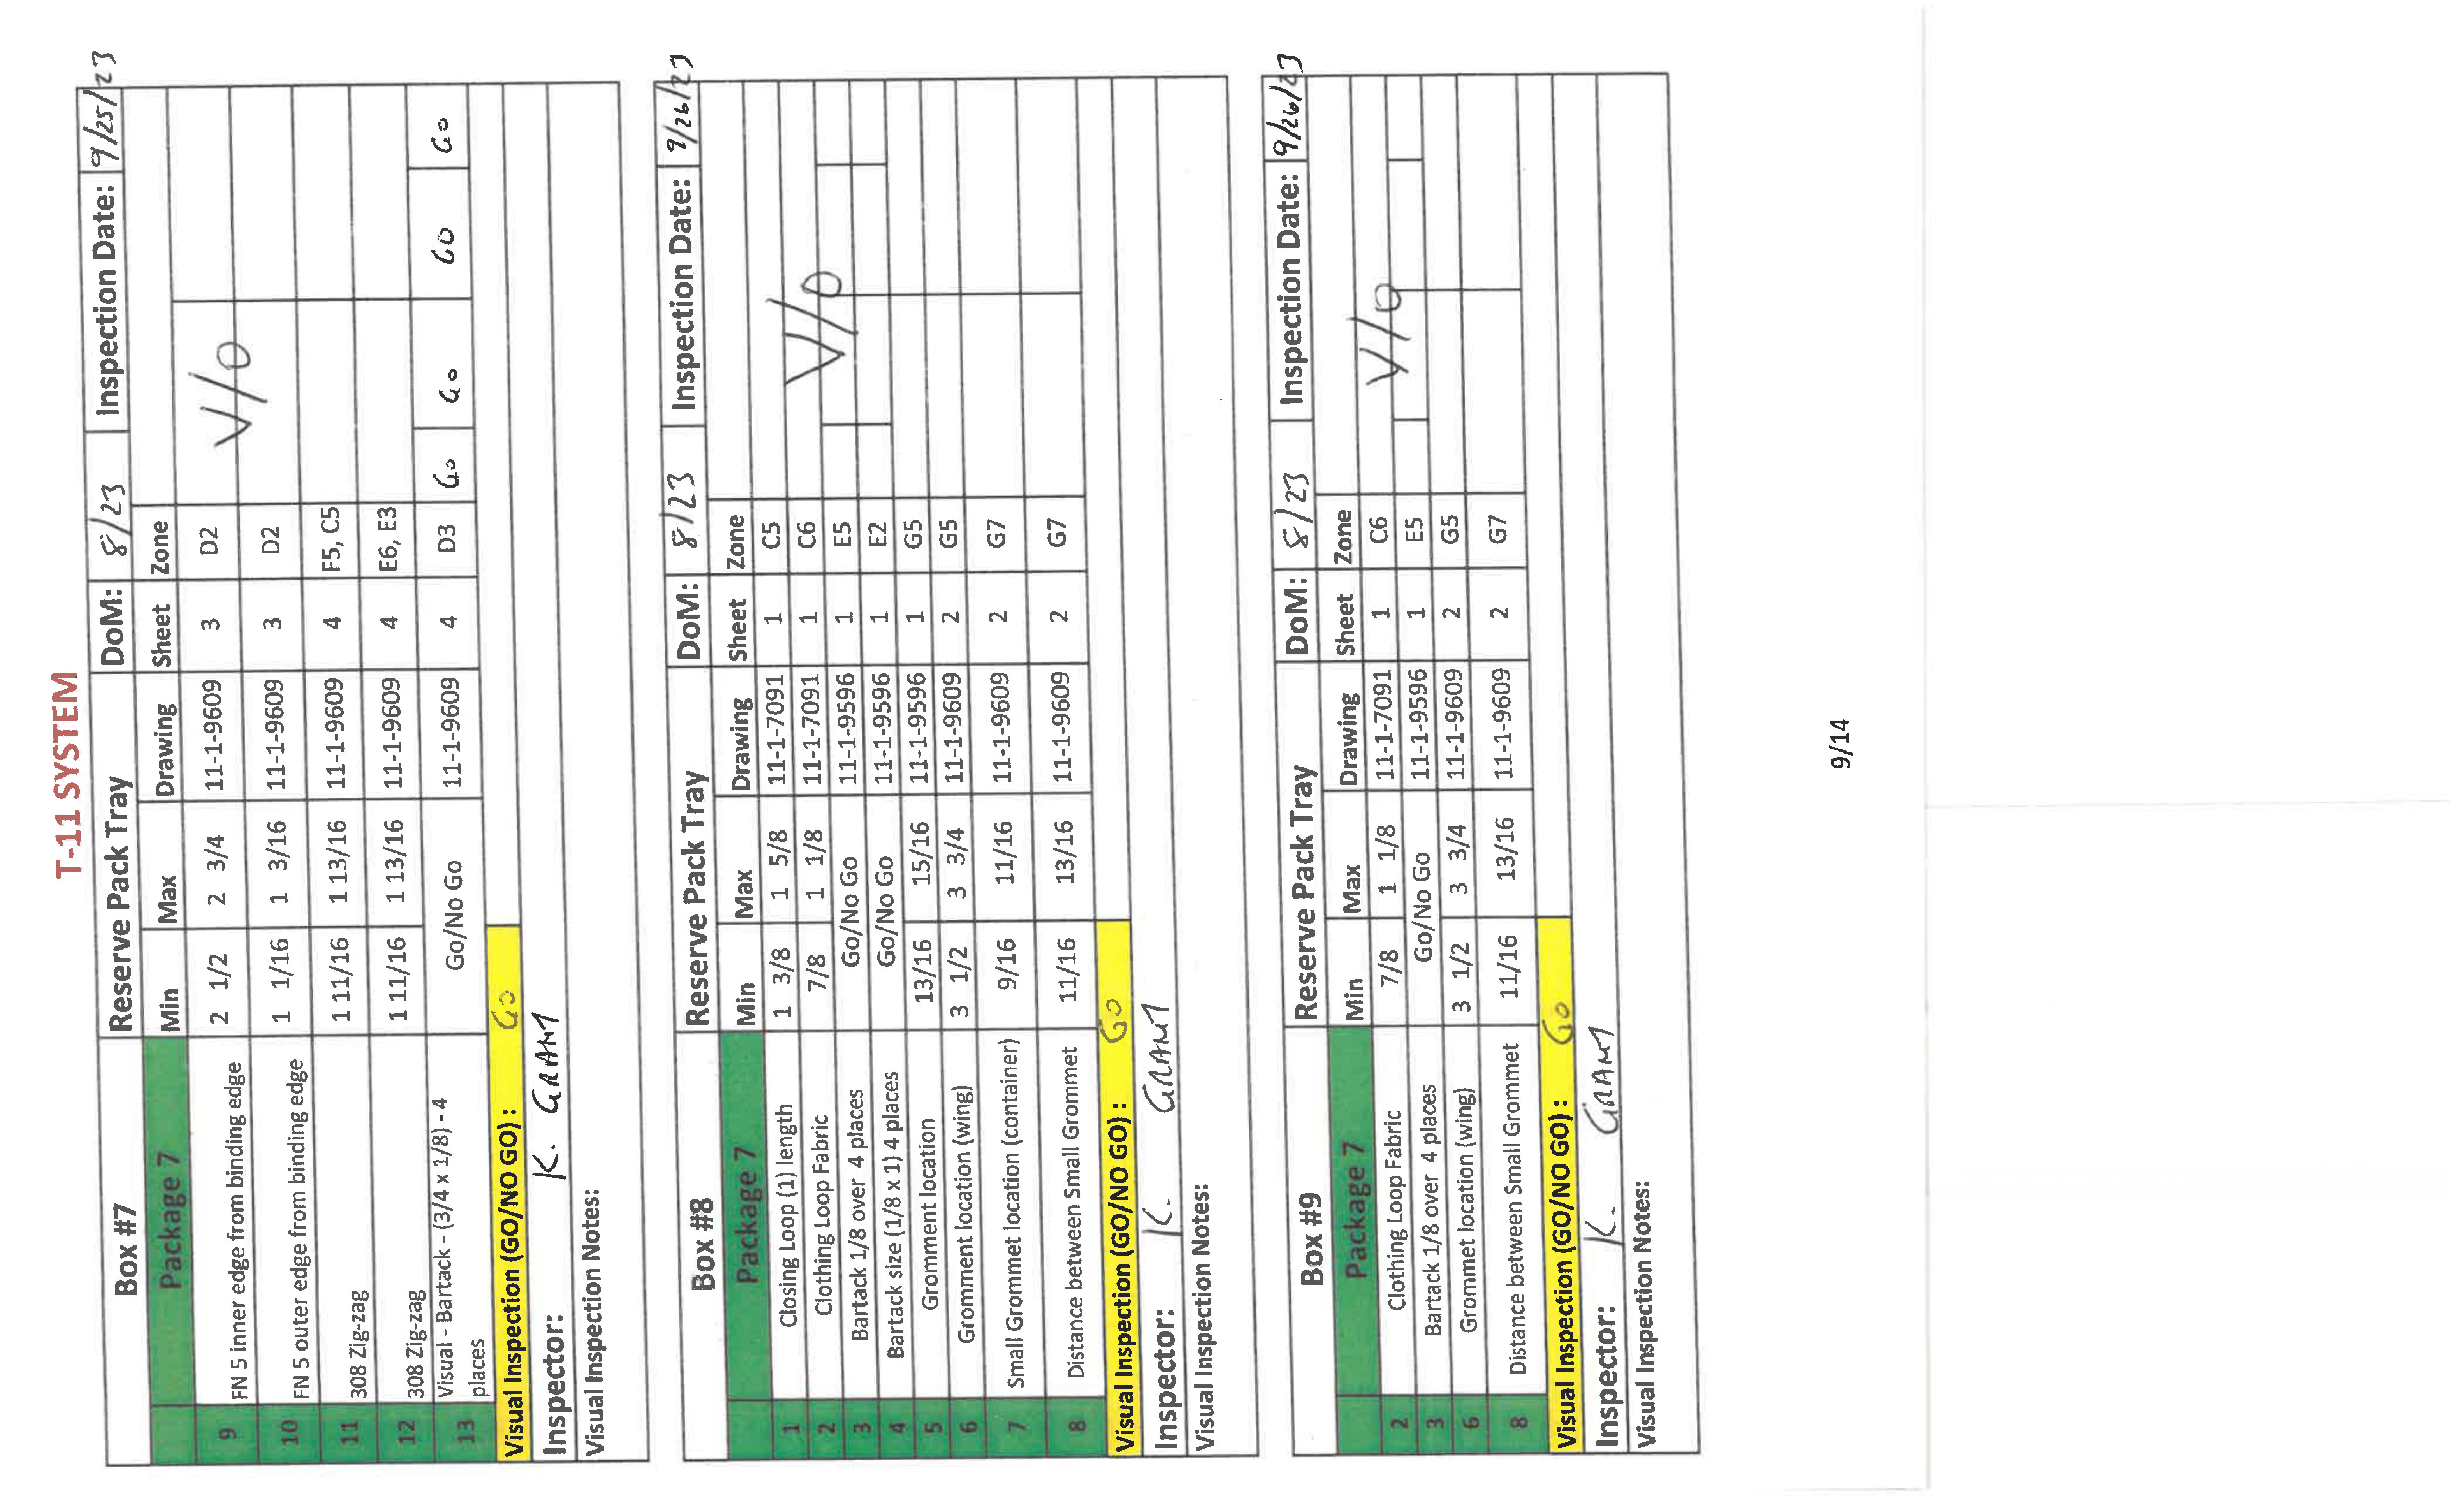 T-11 SYSTEM
Box #7 Reserve Pack Tray DoM: 8/23 Inspection Date: 9/25/23
Package 7 Min Max Drawing Sheet Zone
9 FN 5 inner edge from binding edge 2 1/2 2 3/4 11-1-9609 3 D2 V/O
10 FN 5 outer edge from binding edge 1 1/16 1 3/16 11-1-9609 3 D2
11 308 Zig-zag 1 11/16 1 13/16 11-1-9609 4 F5, C5
12 308 Zig-zag 1 11/16 1 13/16 11-1-9609 4 E6, E3
13 Visual - Bartack - (3/4 x 1/8) - 4 places Go/No Go 11-1-9609 4 D3 Go Go Go Go
Visual Inspection (GO/NO GO) : Go
Inspector: K. GRANT
Visual Inspection Notes:
Box #8 Reserve Pack Tray DoM: 8/23 Inspection Date: 9/26/23
Package 7 Min Max Drawing Sheet Zone
1 Closing Loop (1) length 1 3/8 1 5/8 11-1-7091 1 C5 V/O
2 Clothing Loop Fabric 7/8 1 1/8 11-1-7091 1 C6
3 Bartack 1/8 over 4 places Go/No Go 11-1-9596 1 E5
4 Bartack size (1/8 x 1) 4 places Go/No Go 11-1-9596 1 E2
5 Gromment location 13/16 15/16 11-1-9596 1 G5
6 Gromment location (wing) 3 1/2 3 3/4 11-1-9609 2 G5
7 Small Grommet location (container) 9/16 11/16 11-1-9609 2 G7
8 Distance between Small Grommet 11/16 13/16 11-1-9609 2 G7
Visual Inspection (GO/NO GO) : Go
Inspector: K. GRANT
Visual Inspection Notes:
Box #9 Reserve Pack Tray DoM: 8/23 Inspection Date: 9/26/23
Package 7 Min Max Drawing Sheet Zone
2 Clothing Loop Fabric 7/8 1 1/8 11-1-7091 1 C6 V/O
3 Bartack 1/8 over 4 places Go/No Go 11-1-9596 1 E5
6 Grommet location (wing) 3 1/2 3 3/4 11-1-9609 2 G5
8 Distance between Small Grommet 11/16 13/16 11-1-9609 2 G7
Visual Inspection (GO/NO GO) : Go
Inspector: K. GRANT
Visual Inspection Notes:
9/14